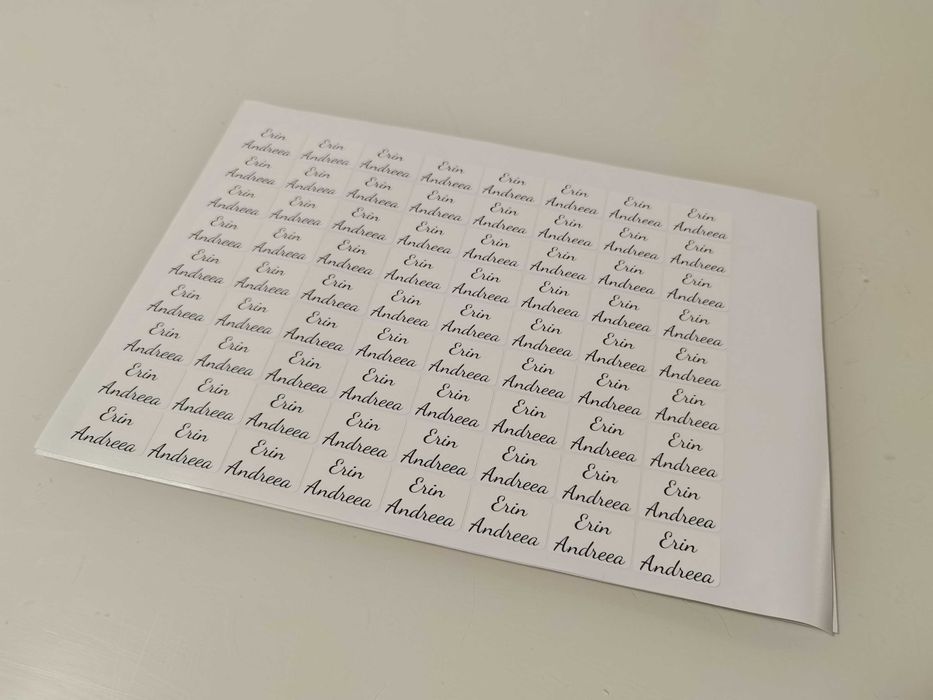 Erin Erin Erin Erin Erin Erin Erin Erin
Andreea Andreea Andreea Andreea Andreea Andreea Andreea Andreea
Erin Erin Erin Erin Erin Erin Erin Erin
Andreea Andreea Andreea Andreea Andreea Andreea Andreea Andreea
Erin Erin Erin Erin Erin Erin Erin Erin
Andreea Andreea Andreea Andreea Andreea Andreea Andreea Andreea
Erin Erin Erin Erin Erin Erin Erin Erin
Andreea Andreea Andreea Andreea Andreea Andreea Andreea Andreea
Erin Erin Erin Erin Erin Erin Erin Erin
Andreea Andreea Andreea Andreea Andreea Andreea Andreea Andreea
Erin Erin Erin Erin Erin Erin Erin Erin
Andreea Andreea Andreea Andreea Andreea Andreea Andreea Andreea
Erin Erin Erin Erin Erin Erin Erin Erin
Andreea Andreea Andreea Andreea Andreea Andreea Andreea Andreea
Erin Erin Erin Erin Erin Erin Erin Erin
Andreea Andreea Andreea Andreea Andreea Andreea Andreea Andreea
Erin Erin Erin Erin Erin Erin Erin Erin
Andreea Andreea Andreea Andreea Andreea Andreea Andreea Andreea